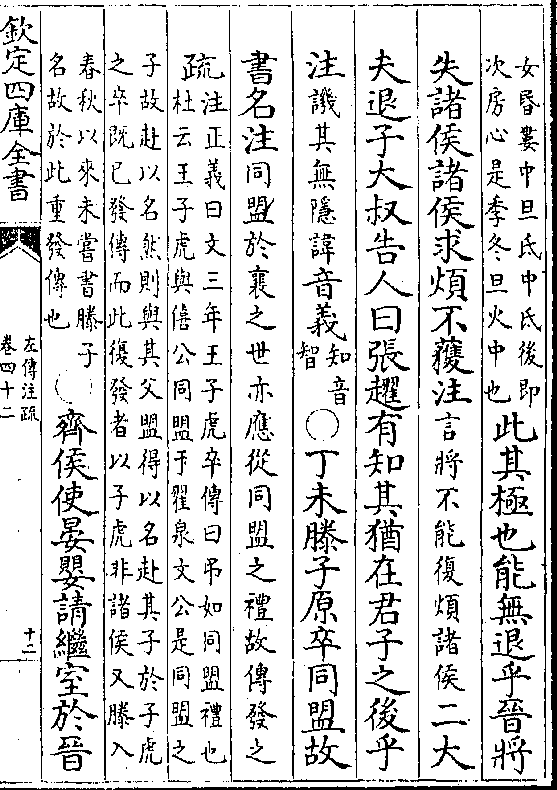 女昏婁中旦氐中氐後即
次房心是季冬旦火中也
此其極也能無退乎晉將
失諸侯諸侯求煩不獲注言將不能復煩諸侯二大
夫退子大叔告人曰張趯有知其猶在君子之後乎
注譏其無隱諱音義知音智○丁未滕子原卒同盟故
書名注同盟於襄之世亦應從同盟之禮故傳發之
疏
注正義曰文三年王子虎卒傳曰弔如同盟禮也
杜云王子虎與僖公同盟于翟泉文公是同盟之
子故赴以名然則與其父盟得以名赴其子於子虎
之卒既已發傳而此復發者以子虎非諸侯又滕入
春秋以來未嘗書滕子
名故於此重發傳也
○齊侯使晏嬰請繼室於晉
欽定四庫全書
左傳注疏
卷四十二
十二